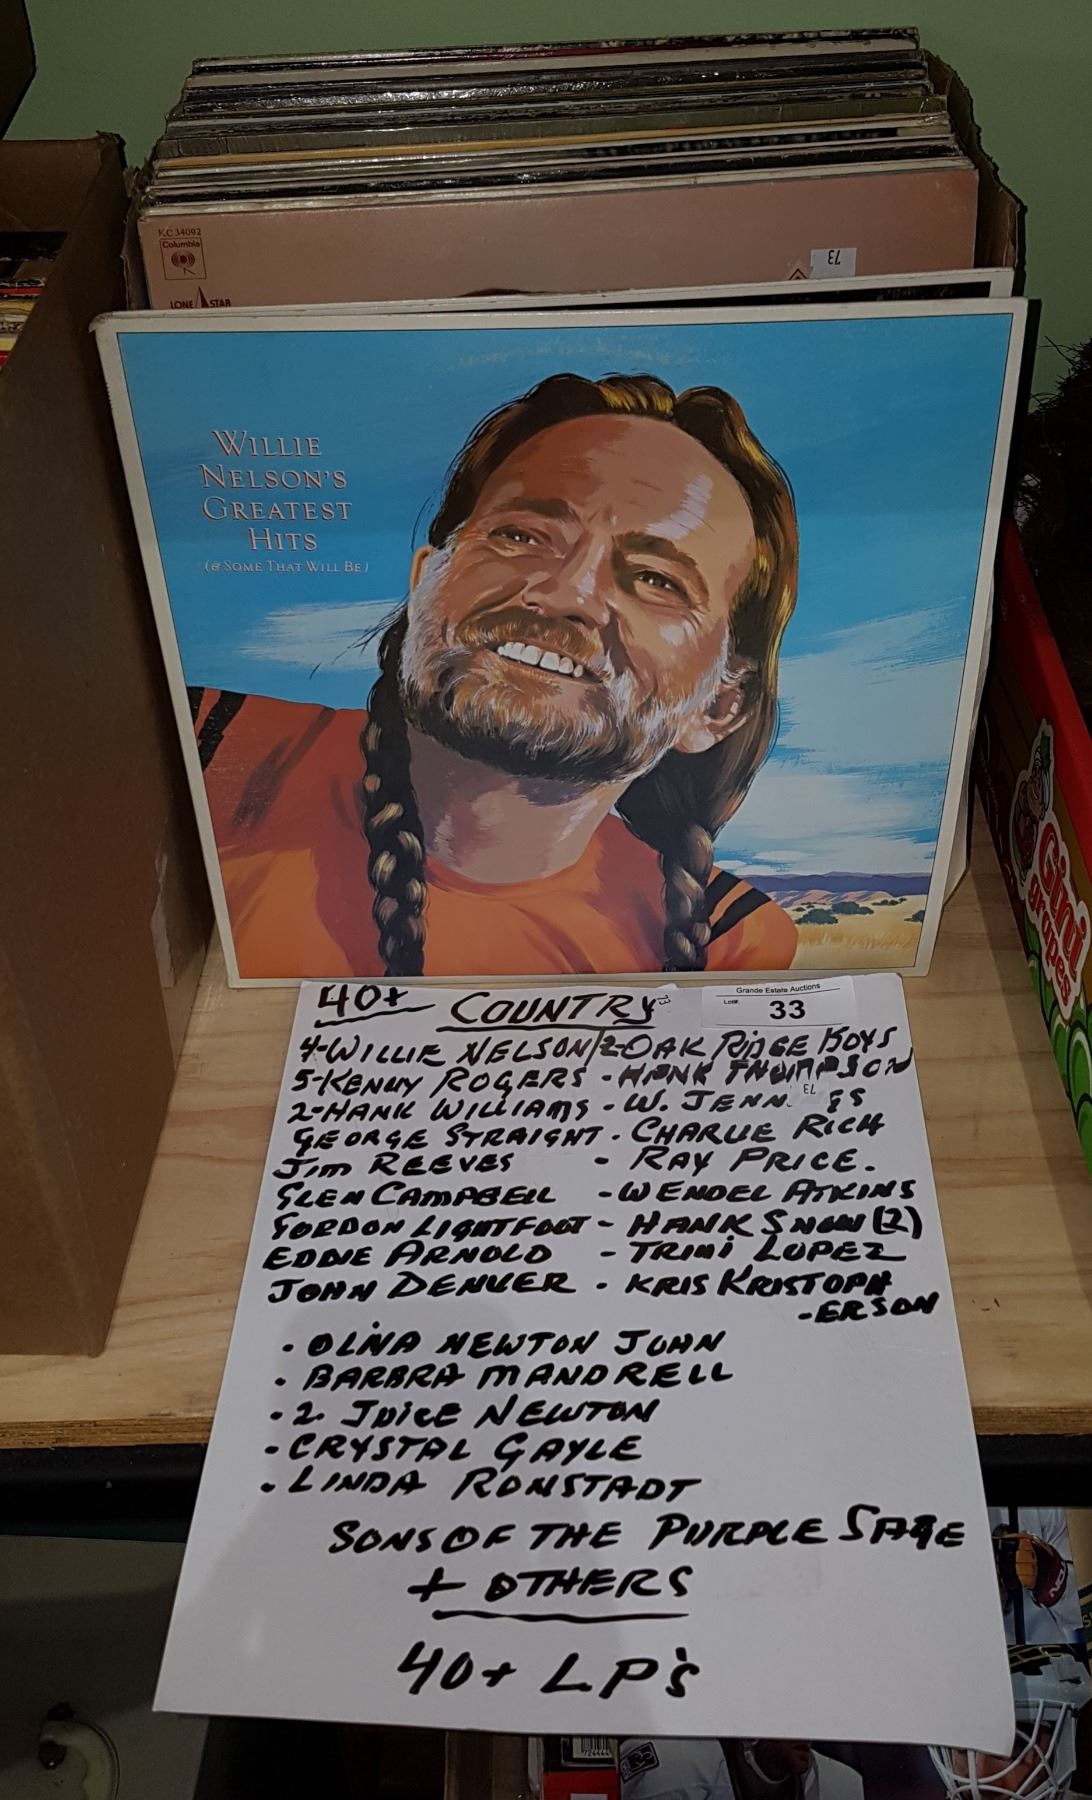 KC 34092
Columbia
LONE STAR
73
WILLIE
NELSON'S
GREATEST
HITS
(& SOME THAT WILL BE)
Grande Estate Auctions
Lot#.
33
40+ COUNTRY
73
4-WILLIE NELSON/2-OAK RIDGE BOYS
5-KENNY ROGERS - HANK THOMPSON
73
2-HANK WILLIAMS - W. JENN GS
GEORGE STRAIGHT - CHARLIE RICH
JIM REEVES - RAY PRICE.
GLEN CAMPBELL - WENDEL ATKINS
GORDON LIGHTFOOT - HANK SNOW (2)
EDDIE ARNOLD - TRINI LOPEZ
JOHN DENVER - KRIS KRISTOPH
-ERSON
• OLIVA NEWTON JOHN
• BARBRA MANDRELL
• 2. JUICE NEWTON
• CRYSTAL GAYLE
• LINDA RONSTADT
SONS OF THE PURPLE SAGE
+ OTHERS
40+ LP's
Gini
grapes